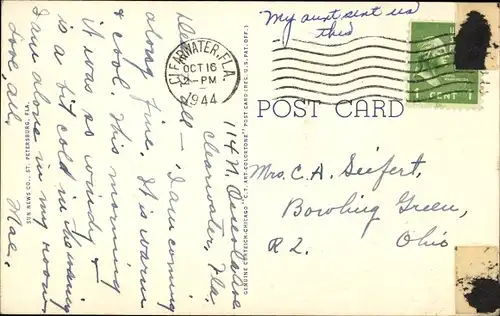 My aunt sent us
this
CLEARWATER, FLA.
OCT 16
2 - PM
1944
1 CENT 1
POST CARD
114 N. Osceola Ave
Clearwater, Fla.
Dear all — I am coming
along fine. It is warm
& cool. This morning
it was so windy &
is a bit cold in the
I am alone in my room
Love, all,
Mae.
Mrs. C. A. Seifert,
Bowling Green,
R 2. Ohio
SUN NEWS CO., ST. PETERSBURG, FLA.
GENUINE CURTEICH-CHICAGO "C.T. ART-COLORTONE" POST CARD (REG. U.S. PAT. OFF.)